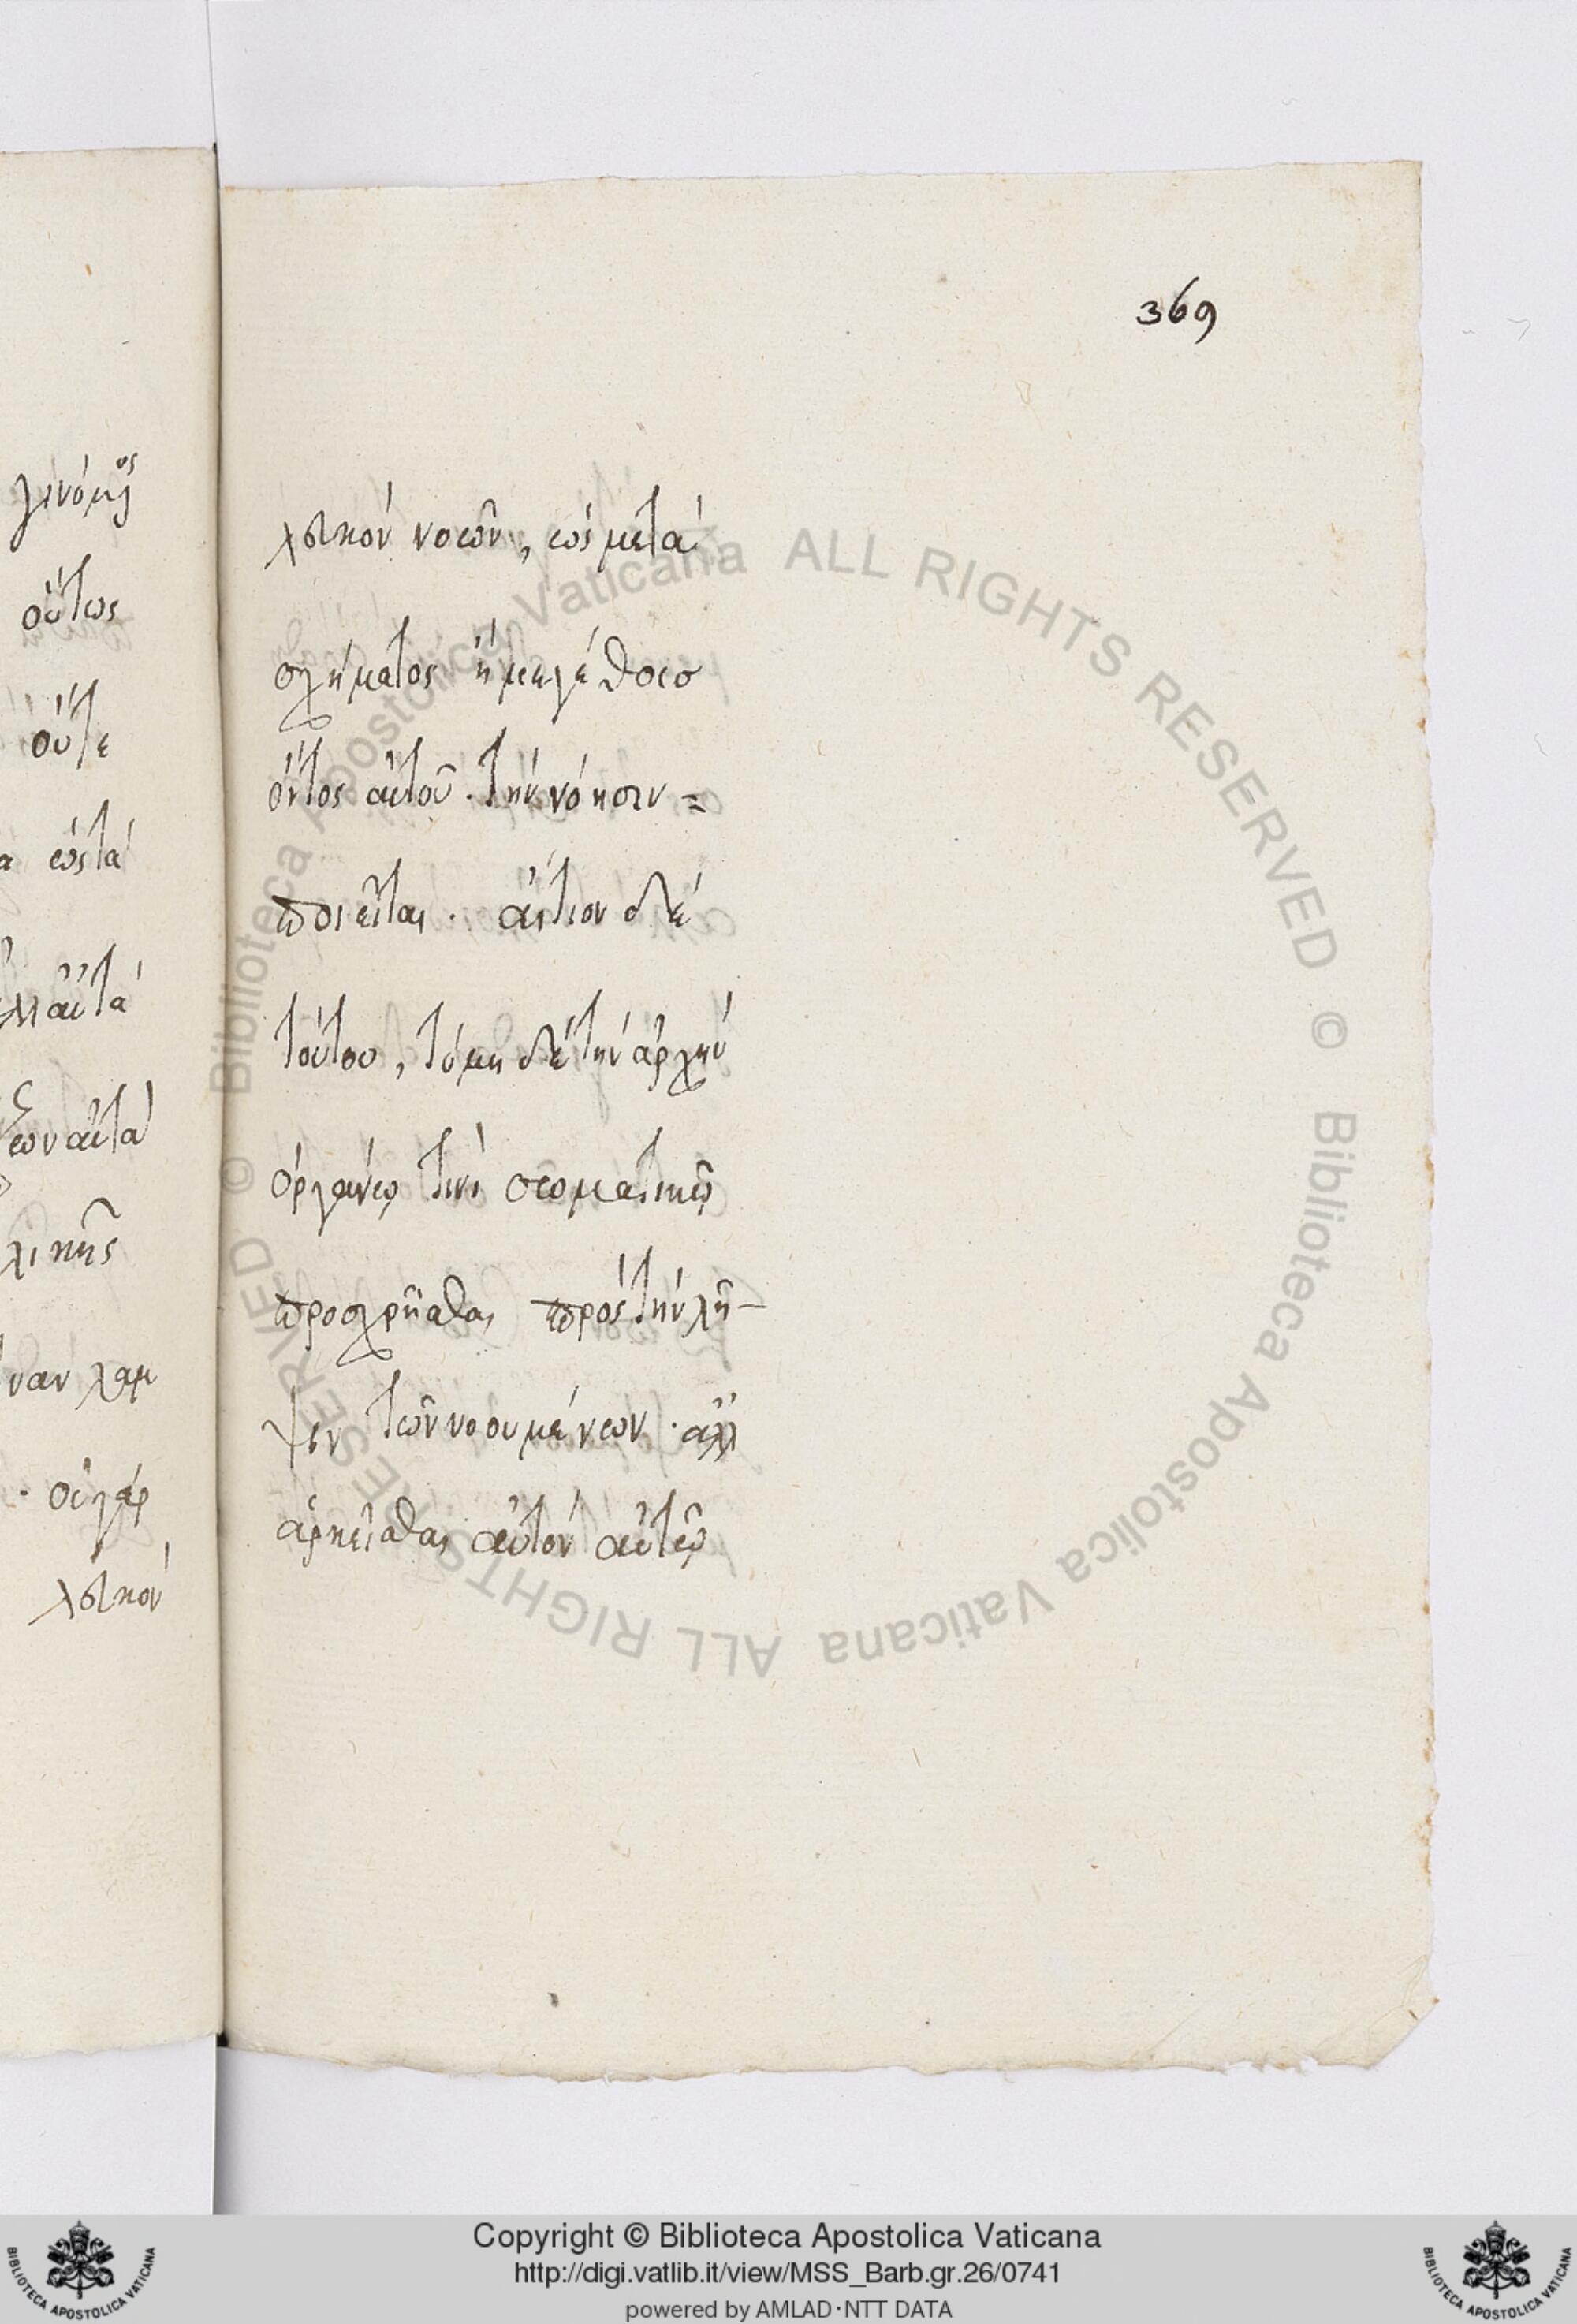 369
γινόμενος
οὕτως
οὔτε
ὡς τὰ
αὐτὰ
αὐτὰ
λικῆς
λαμ
οὐ γὰρ
λευκὸν
λευκὸν νοῶν, ὡς μετὰ
σχήματος ἢ μεγέθους
ὄντος αὐτοῦ. τὴν νόησιν =
ποιεῖται. αἴτιον δὲ
τούτου, τὸ μηδὲ τὴν ἀρχὴν
ὀργάνῳ τινὶ σωματικῷ
προσχρῆσθαι πρὸς τὴν λῆ-
ψιν τῶν νοουμένων. ἀλλ
ἀρκεῖσθαι αὐτὸν αὑτῷ
Biblioteca Apostolica Vaticana ALL RIGHTS RESERVED © Biblioteca Apostolica Vaticana ALL RIGHTS RESERVED ©
Copyright © Biblioteca Apostolica Vaticana
http://digi.vatlib.it/view/MSS_Barb.gr.26/0741
powered by AMLAD·NTT DATA
BIBLIOTECA APOSTOLICA VATICANA
BIBLIOTECA APOSTOLICA VATICANA